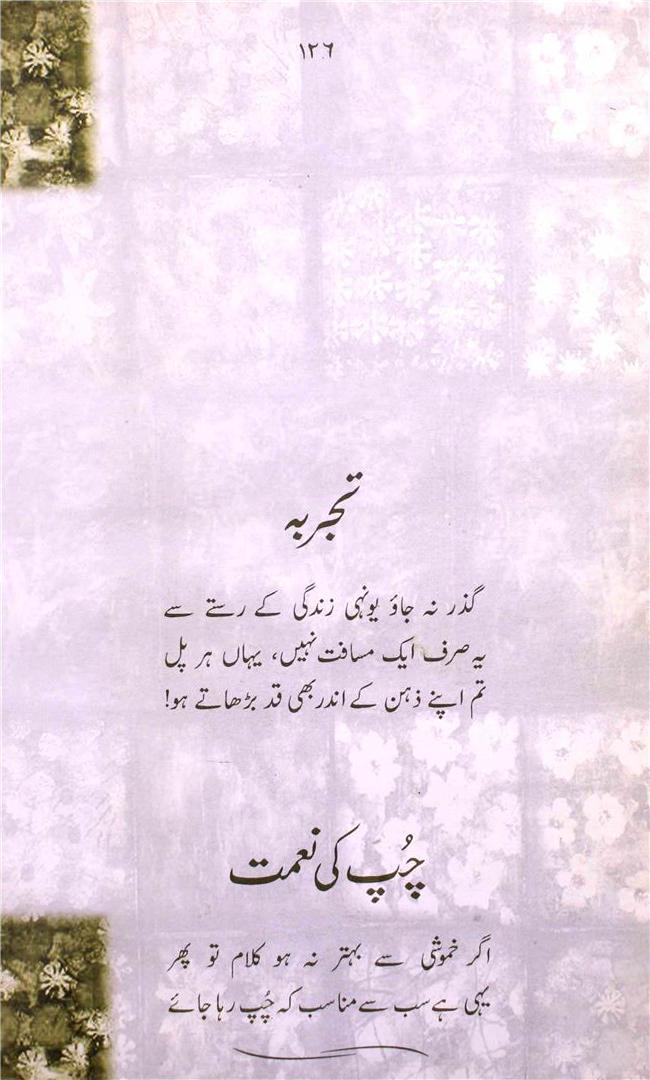 ۱۲۶
تجربہ
گذر نہ جاؤ یونہی زندگی کے رستے سے
یہ صرف ایک مسافت نہیں، یہاں ہر پل
تم اپنے ذہن کے اندر بھی قد بڑھاتے ہو!
چُپ کی نعمت
اگر خموشی سے بہتر نہ ہو کلام تو پھر
یہی ہے سب سے مناسب کہ چُپ رہا جائے